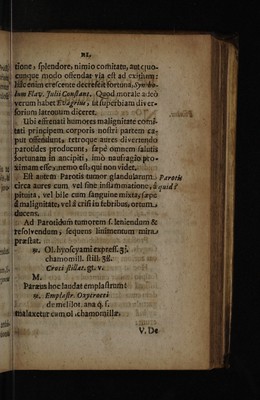 XI.
tione, splendore, nimio comitatu, aut quo-
cunque modo ostendar via est ad exitium:
hîc enim crescente decrescit fortuna, Symbo-
lum Flav. Julii Constant. Quod morale adeò
verum habet Evagrius, ut superbiam diver-
sorium latronum diceret.
Ubi effrenati humores malignitate comi-
tati principem corporis nostri partem ca-
put offendunt, retroque aures divertendo
parotides producunt, sæpè omnem salutis
fortunam in ancipiti, imò naufragio pro-
ximam esse, nemo est, qui non videt.
Est autem Parotis tumor glandularum
Parotis quid?
circa aures cum vel sine inflammatione, à
pituita, vel bile cum sanguine mixta, sæpè
à malignitate, vel à crisi in febribus, ortum
ducens.
Ad Parotidum tumorem s. leniendum &
resolvendum, sequens linimentum mirè
præstat.
℞. Ol. hyoscyami express. ʒj.
chamomill. still. ʒß.
Croci stillat. gt. v.
M.
Paræus hoc laudat emplastrum:
℞. Emplastr. Oxycrocei
de melilot. ana q. s.
malaxetur cum ol. chamomillæ.
V. De